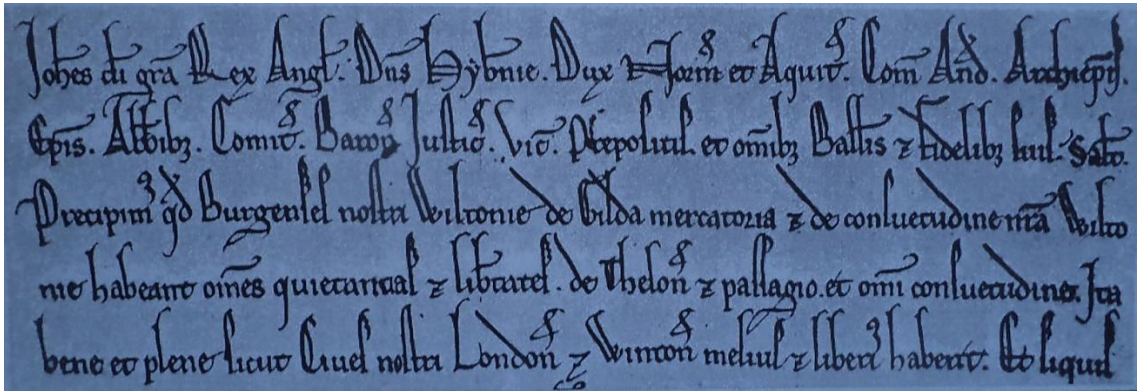 Joh̄es d̄i gr̄a Rex Angl̄. Dn̄s Hyb̄nie. Dux Norm̄ et Aquit̄. Com̄ And̄. Archiep̄is.
Ep̄is. Abb̄ibȝ. Comit̄. Baroñ Justic̄. Vic̄. P̄repositis. et om̄ibȝ Ball̄is ⁊ fidelibȝ suis. Sal̄t.
Precipimꝰ qd̄ Burgenses nostri Wiltonie de Gilda mercatoria ⁊ de consuetudine nr̄a Wilto
nie habeant om̄es quietantias ⁊ lib̄tates. de Theloñ ⁊ passagio. et om̄i consuetudine. Ita
bene et plene sicut Cives nostri Londoñ ⁊ Wintoñ melius ⁊ liberiꝰ habent. Et siquis